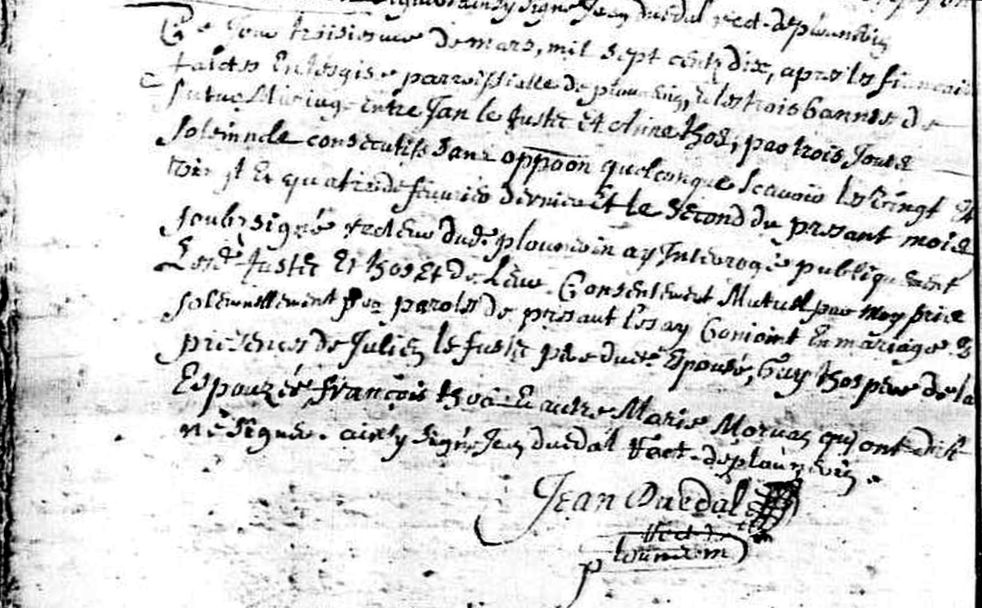 ainsy signé Jean duedal rect. de plounevin
Ce Jour troisiesme de mars, mil sept cents dix, apres les fiancailles
faictes En lesglise parroissialle de plounevin, et les trois bannies de
futur Mariage Entre Jan le Juster Et Anne thos, par trois Jours
solemnele consecutifs sans oppaon quelconque scavoir les Vingt Et
Vingt Et quatre de feuvrier dernier Et le second du presant mois
soubzsigné recteur dudt. plounevin ay Interrogé publiquement
Lesdt. Juster Et thos Et de Leur Consentement Mutuel par moy prins
solemnellement par paroles de presant Les ay Conjoint En mariage Es
presences de Julien le Juster pere dudt. Epouse, Guy thos pere de la
Espouzée, François thos Et autre Marie Morvan quy ont dit
ne signer. ainsy signé Jean duedal Rect. de plounevin.
Jean Duedal
Rect. de
plounevin